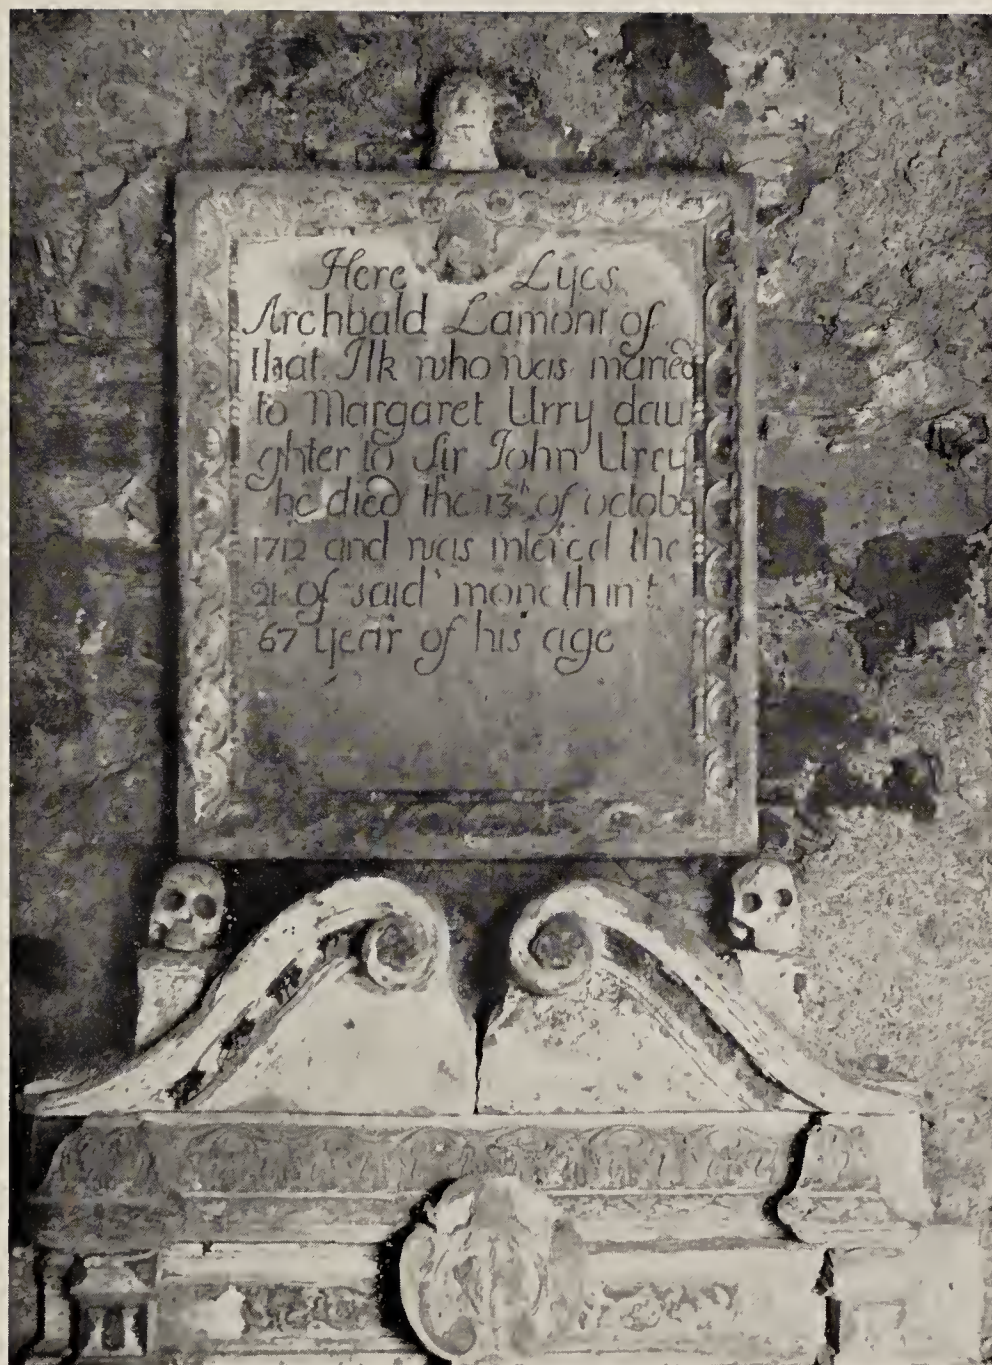 Here Lyes
Archbald Lamont of
that Ilk who was maried
to Margaret Urry dau
ghter to Sir John Urry
he died the 13th of octobe
1712 and was intered the
21 of said moneth in t
67 year of his age